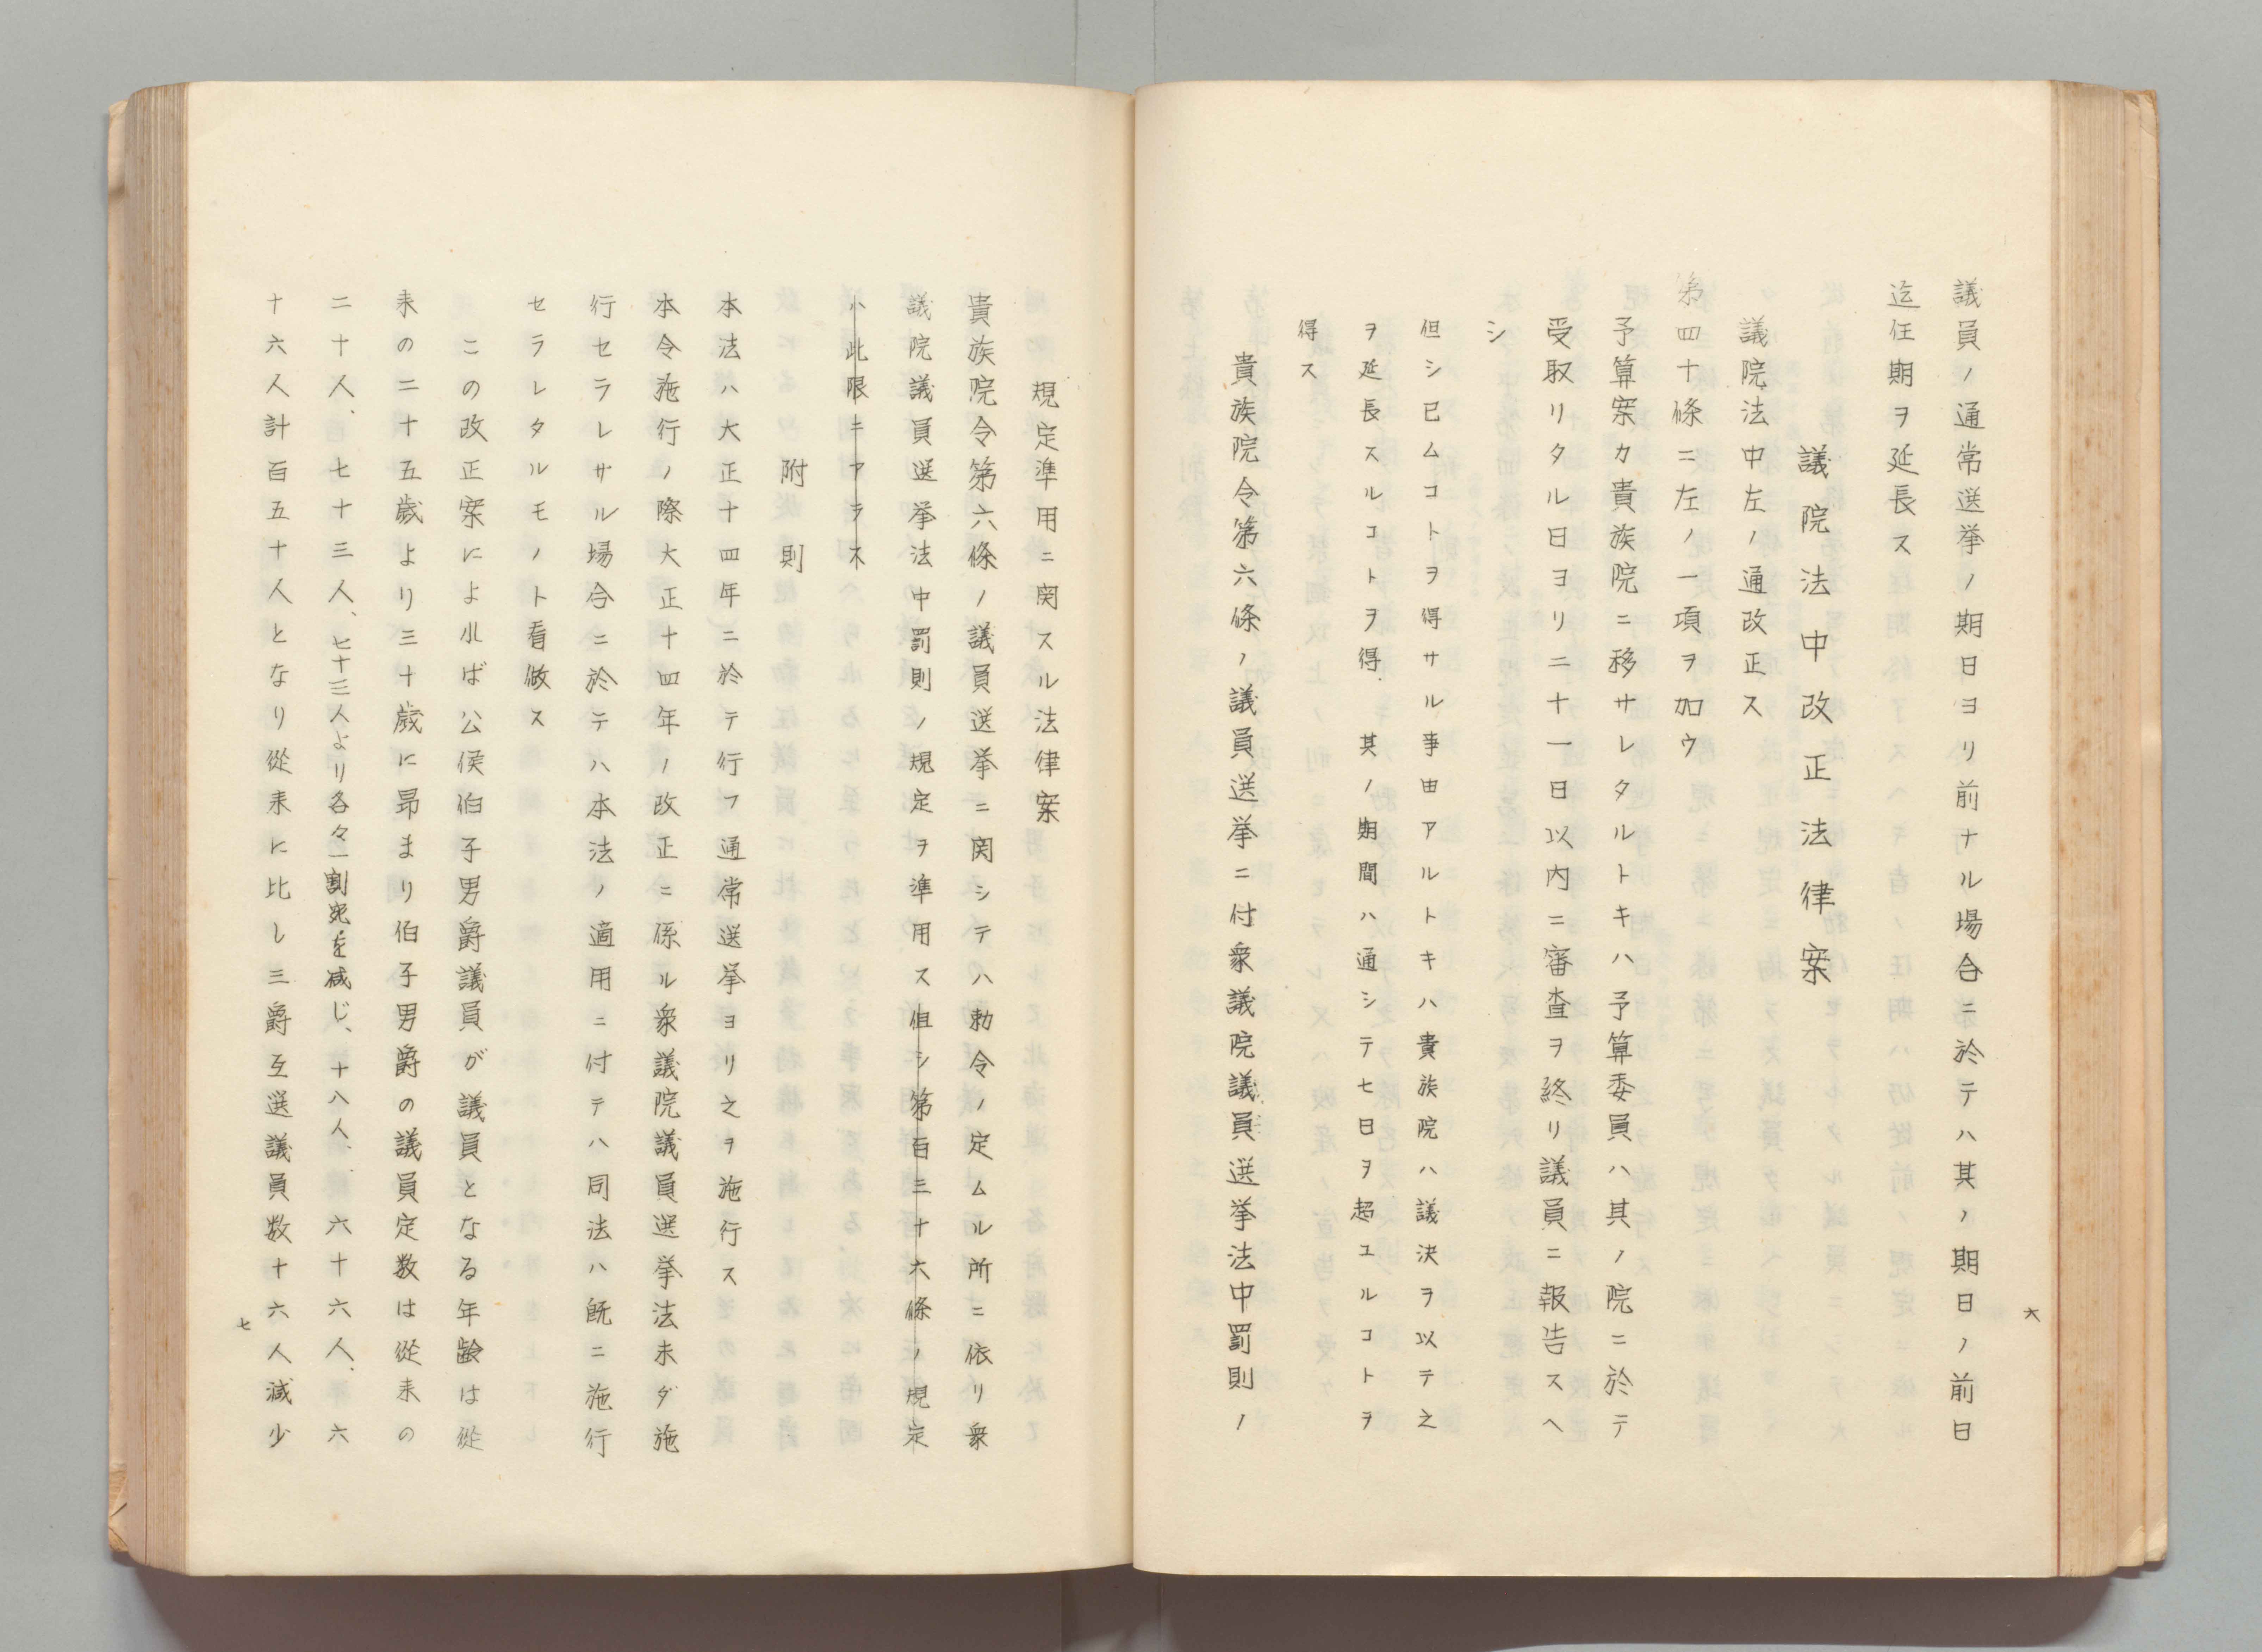 議員ノ通常選挙ノ期日ヨリ前ナル場合ニ於テハ其ノ期日ノ前日
迄任期ヲ延長ス
議院法中改正法律案
議院法中左ノ通改正ス
第四十條ニ左ノ一項ヲ加ウ
予算案カ貴族院ニ移サレタルトキハ予算委員ハ其ノ院ニ於テ
受取リタル日ヨリ二十一日以内ニ審査ヲ終リ議員ニ報告スヘ
シ
但シ已ムコトヲ得サル事由アルトキハ貴族院ハ議決ヲ以テ之
ヲ延長スルコトヲ得 其ノ期間ハ通シテ七日ヲ超ユルコトヲ
得ス
貴族院令第六條ノ議員選挙ニ付衆議院議員選挙法中罰則ノ
六
規定準用ニ関スル法律案
貴族院令第六條ノ議員選挙ニ関シテハ勅令ノ定ムル所ニ依リ衆
議院議員選挙法中罰則ノ規定ヲ準用ス但シ第百三十六條ノ規定
ハ此限ニアラス
附則
本法ハ大正十四年ニ於テ行フ通常選挙ヨリ之ヲ施行ス
本令施行ノ際大正十四年ノ改正ニ係ル衆議院議員選挙法未ダ施
行セラレサル場合ニ於テハ本法ノ適用ニ付テハ同法ハ既ニ施行
セラレタルモノト看做ス
この改正案によれば公侯伯子男爵議員が議員となる年齢は従
来の二十五歳より三十歳に昂まり伯子男爵の議員定数は従来の
二十人、七十三人、七十三人より各々一割宛を減じ、十八人、六十六人、六
十六人計百五十人となり従来に比し三爵互選議員数十六人減少
七